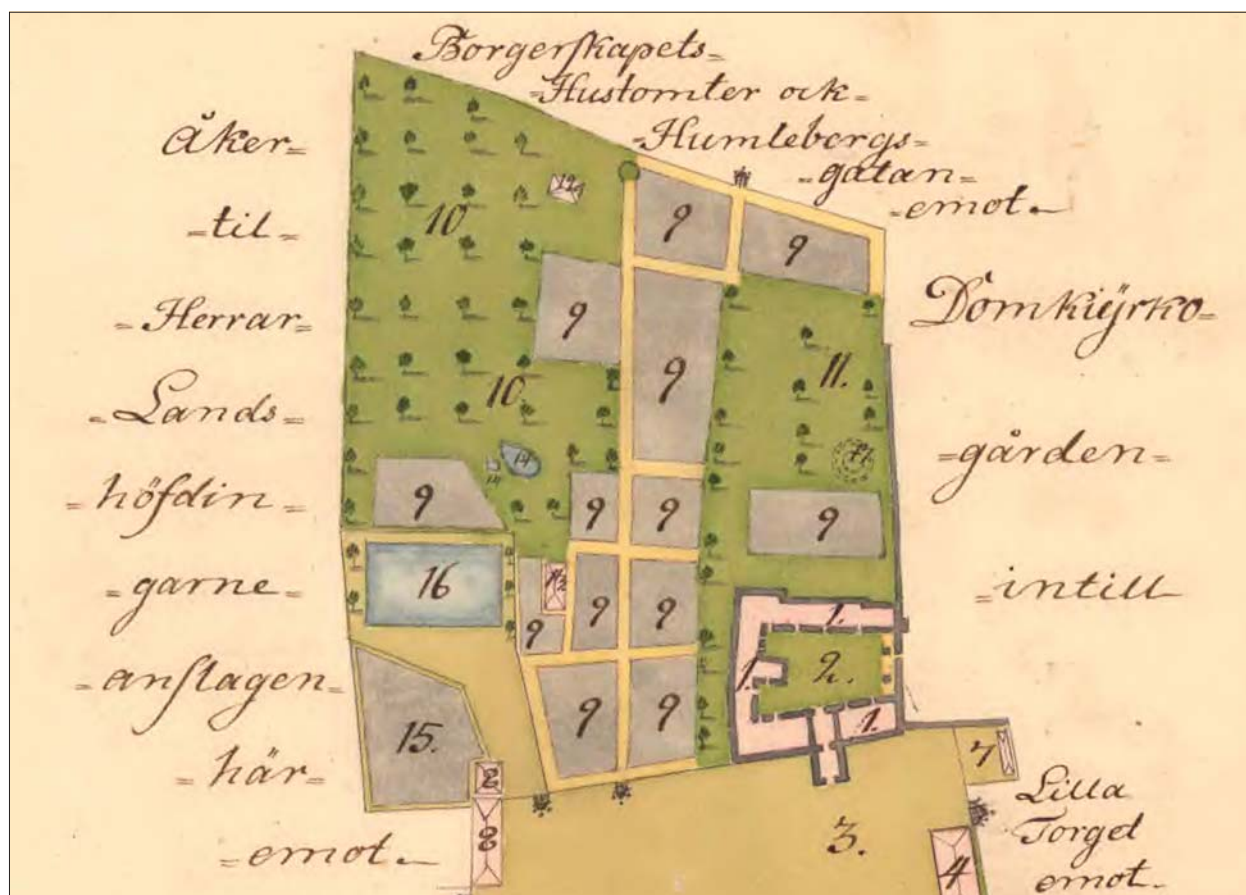 Borgerſkapets=
=Hustomter ock=
=Humlebergs=
=gatan=
=emot=
Åker=
=til=
=Herrar=
=Lands=
=höfdin=
=garne=
=anſlagen=
=här=
=emot=
Domkiÿrko=
=gården=
=intill
Lilla
Torget
emot=
12
10
9
9
9
9
11.
10.
14
14
9
9
9
9
16
9
9
9
1.
1.
2.
1.
15.
9
9
7
8
8
3.
4